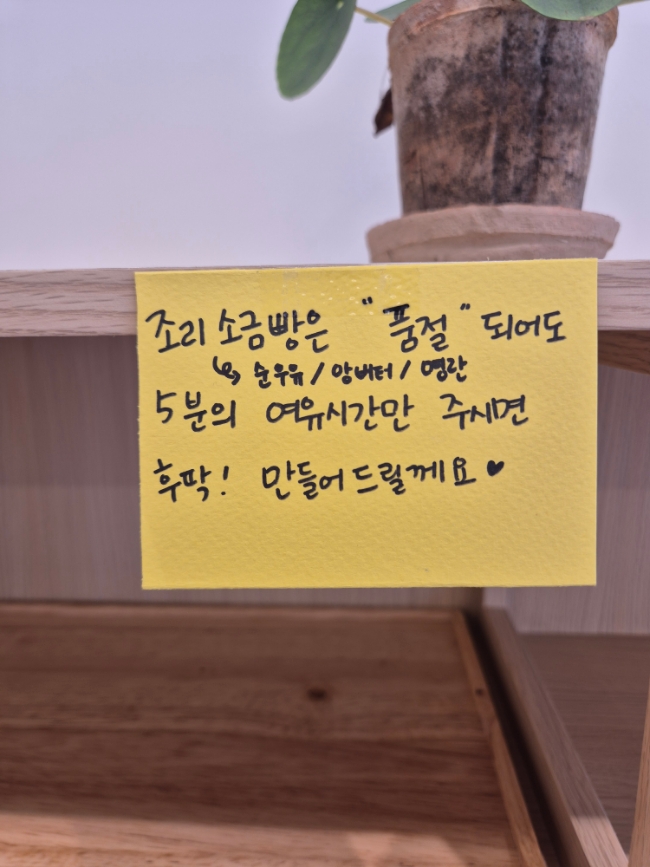 조리 소금빵은 "품절" 되어도
↳ 순우유 / 앙버터 / 명란
5분의 여유시간만 주시면
후딱! 만들어 드릴께요 ♥